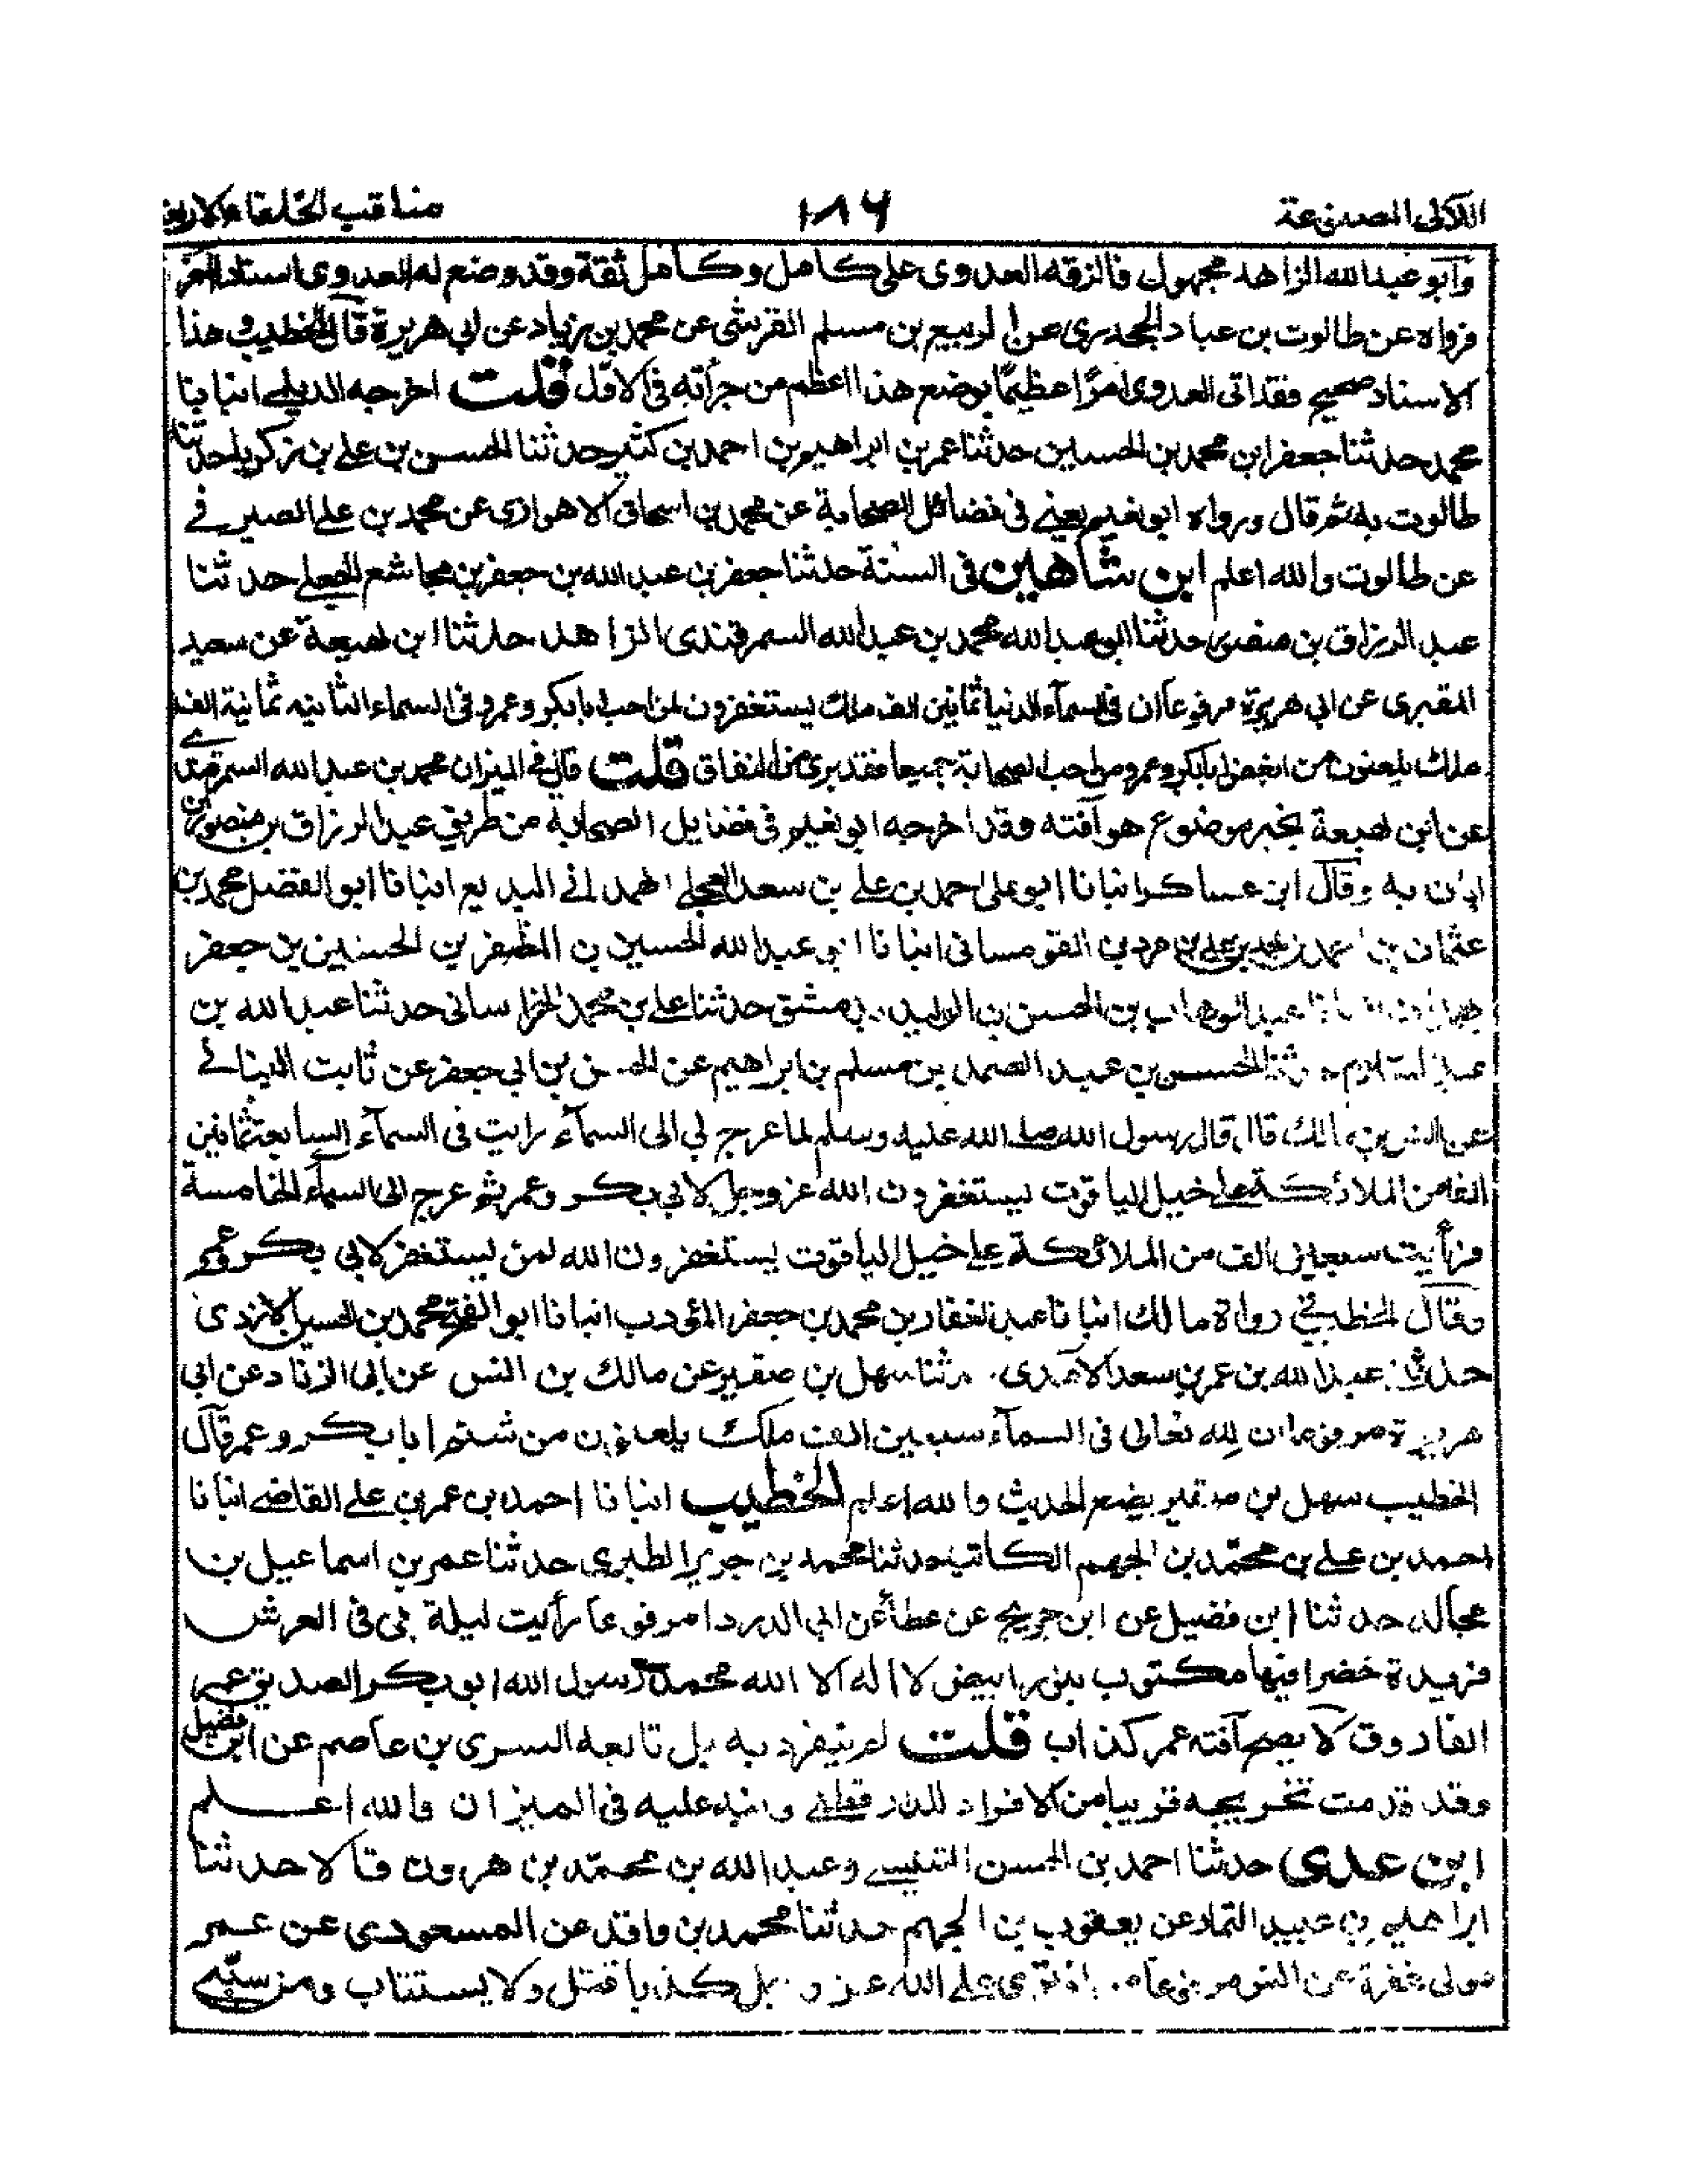 اللآلى المصنوعة ١٨٦ مناقب الخلفاء الاربعة
وابو عبد الله الزاهد مجهول فالزقه العدوى على كامل وكامل ثقة وقد وضع له العدوى اسنادا اخر
فرواه عن طالوت بن عباد الجحدرى عن الربيع بن مسلم القرشى عن محمد بن زياد عن ابى هريرة قال الخطيب وهذا
الاسناد صحيح فقد اتى العدوى امرًا عظيمًا بوضع هذا اعظم من جرأته فى الاول قلت اخرجه الديلمى انبانا
محمد حدثنا جعفر ابن محمد بن الحسين حدثنا عمر بن ابراهيم بن احمد بن كثير حدثنا الحسن بن على بن زكريا حدثنا
طالوت به ثم قال ورواه ابو نعيم يعنى فى فضائل الصحابة عن محمد بن اسحاق الاهوازى عن محمد بن على الصيرفى
عن طالوت والله اعلم ابن شاهين فى السنة حدثنا جعفر بن عبد الله بن جعفر بن مجاشع حدثنا
عبد الرزاق بن منصور حدثنا ابو عبد الله محمد بن عبد الله السمرقندى الزاهد حدثنا ابن لهيعة عن سعيد
المقبرى عن ابى هريرة مرفوعا ان فى السمآء الدنيا ثمانين الف ملك يستغفرون لمن احب ابا بكر وعمر وفى السماء الثانيه ثمانية الف
ملك يلعنون من ابغض ابا بكر وعمر ومن احب الصحابة جميعا فقد برئ من النفاق قلت قال فى الميزان محمد بن عبد الله السمرقندى
عن ابن لهيعة بخبر موضوع هو آفته وقد اخرجه ابو نعيم فى فضايل الصحابة من طريق عبد الرزاق بن منصور بن
ابان به وقال ابن عساكر انبانا ابو على احمد بن على بن سعد العجلى الهمدانى البديع انبانا ابو الفضل محمد بن
عثمان بن احمد بن محمد بن على بن مردين القومسانى انبانا ابو عبد الله الحسين بن المظفر بن الحسنين بن جعفر
انبانا عبد الوهاب بن الحسن بن الوليد بدمشق حدثنا على بن محمد الخراسانى حدثنا عبد الله بن
عبد السلام حدثنا الحسن بن عبد الصمد بن مسلم بن ابراهيم عن الحسن بن ابى جعفر عن ثابت البنانى
عن انس بن مالك قال قال رسول الله صلى الله عليه وسلم لما عرج بى الى السمآء رايت فى السمآء السابعة ثمانين
الفا من الملائكة على خيل الياقوت يستغفرون الله عز وجل لابى بكر وعمر ثم عرج الى السمآء الخامسة
فرأيت سبعين الف من الملائكة على خيل الياقوت يستغفرون الله لمن يستغفر لابى بكر وعمر
وقال الخطيب فى رواة مالك انبانا عبد الغفار بن محمد بن جعفر المؤدب انبانا ابو الفتح محمد بن الحسين الازدى
حدثنا عبد الله بن عمر بن سعد حدثنا سهل بن صقير عن مالك بن انس عن ابى الزناد عن ابى
هريرة مرفوعا ان لله تعالى فى السمآء سبعين الف ملك يلعنون من شتم ابا بكر وعمر قال
الخطيب سهل بن صقير يضع الحديث والله اعلم الخطيب انبانا احمد بن عمر بن على القاضى انبانا
احمد بن على بن محمد بن الجهم الكاتب حدثنا محمد بن جرير الطبرى حدثنا عمر بن اسماعيل بن
مجالد حدثنا ابن فضيل عن ابن جريج عن عطأ عن ابى الدردا مرفوعا رأيت ليلة بى فى العرش
فريدة خضرا فيها مكتوب بنور ابيض لا اله الا الله محمد رسول الله ابو بكر الصديق عمر
الفاروق لا يصح آفته عمر كذاب قلت لم ينفرد به بل تابعه السرى بن عاصم عن ابن فضيل
وقد قدمت تخريجه قريبا من الافراد للدارقطنى وانبه عليه فى الميزان والله اعلم
ابن عدى حدثنا احمد بن الحسن التنيسى وعبد الله بن محمد بن هرون قالا حدثنا
ابراهيم بن عبيد التمار عن يعقوب بن الجهم حدثنا محمد بن واقد عن المسعودى عن عمر
مولى غفرة عن انس مرفوعا افترى على الله عز وجل كذبا قتل ولا يستتاب ومن سبّنى